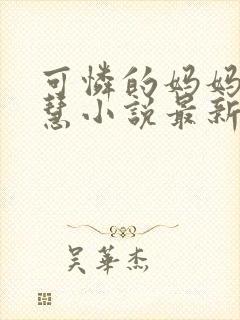 可憐的妈妈
慧小説最新
吴華杰